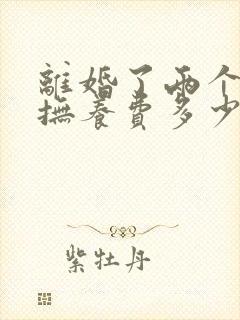 離婚了兩个
撫養費多少
紫牡丹